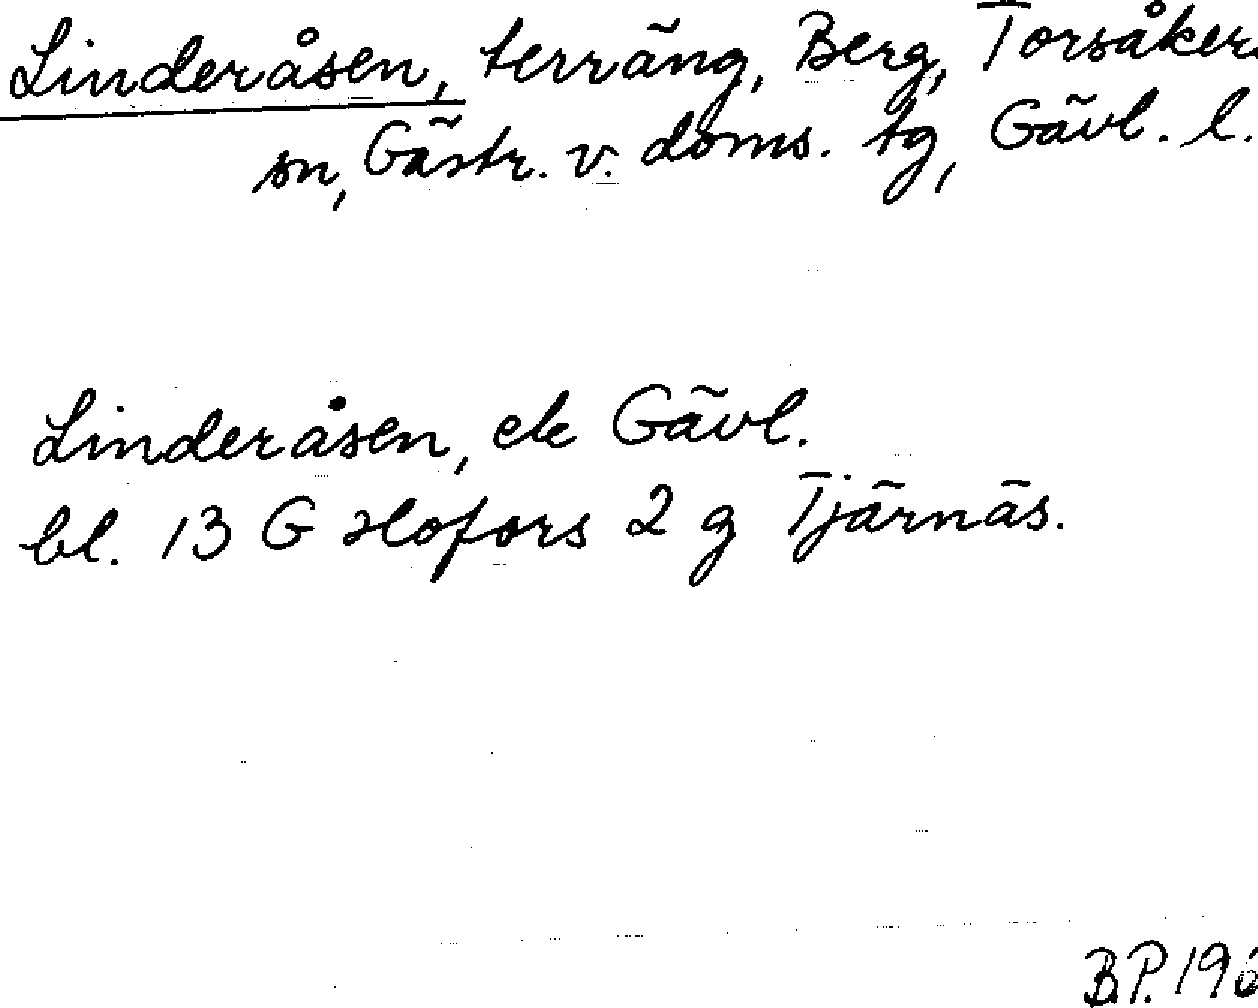 Linderåsen, terräng, Berg, Torsåkers
sn, Gästr. v. doms. tg, Gävl. l.
Linderåsen, ek Gävl.
bl. 13 G Hofors 2 g Tjärnäs.
B.P. 196